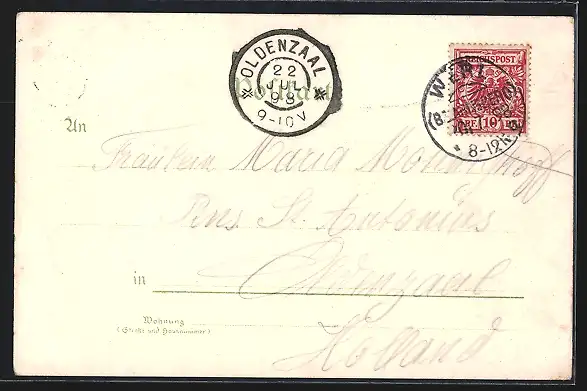 OLDENZAAL
22
JUL
98
9-10V
Postkarte
REICHSPOST
PF. 10 PF.
WERL
* 8-12V.
An
Fräulein Maria
Pens. St. Antonius
in Oldenzaal
Wohnung
(Straße und Hausnummer)
Holland